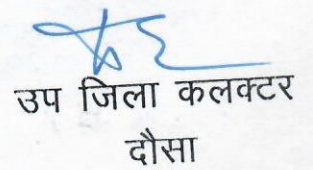 उप जिला कलक्टर
दौसा